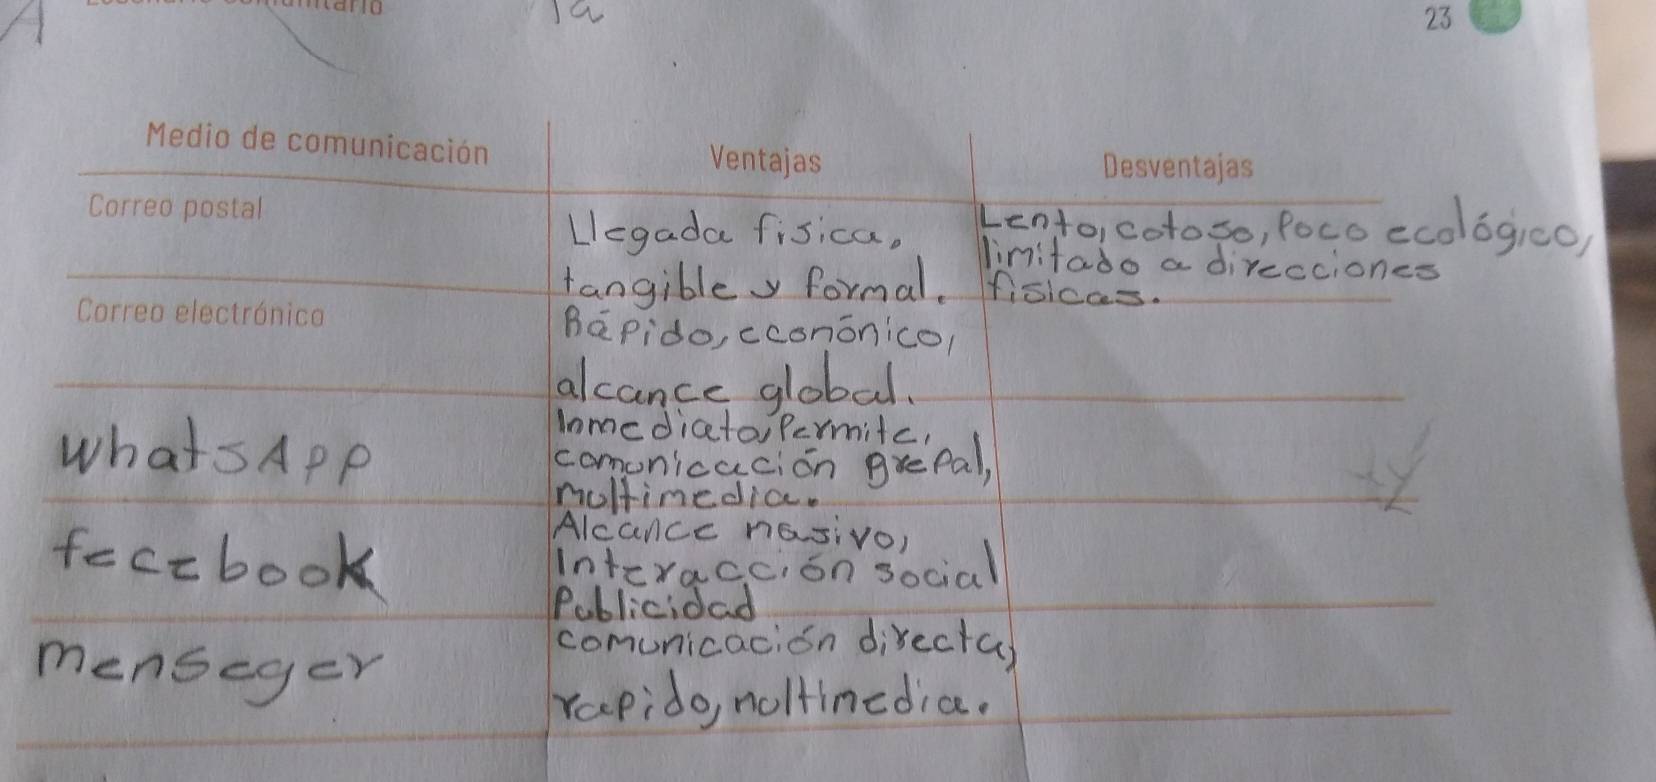 23
Medio de comunicación Ventajas Desventajas
Correo postal
Llegada física,
tangible y formal.
Lento, cotoso, Poco ecológico,
limitado a direcciones
físicas.
Correo electrónico
Rápido, econónico,
alcance global.
WhatsApp
Inmediata, Permite,
comonicación grepal,
moltimedia.
fecebook
Alcance nasivo,
Interacción social
Publicidad
menseger
comunicación directa,
rapido, noltimedia.